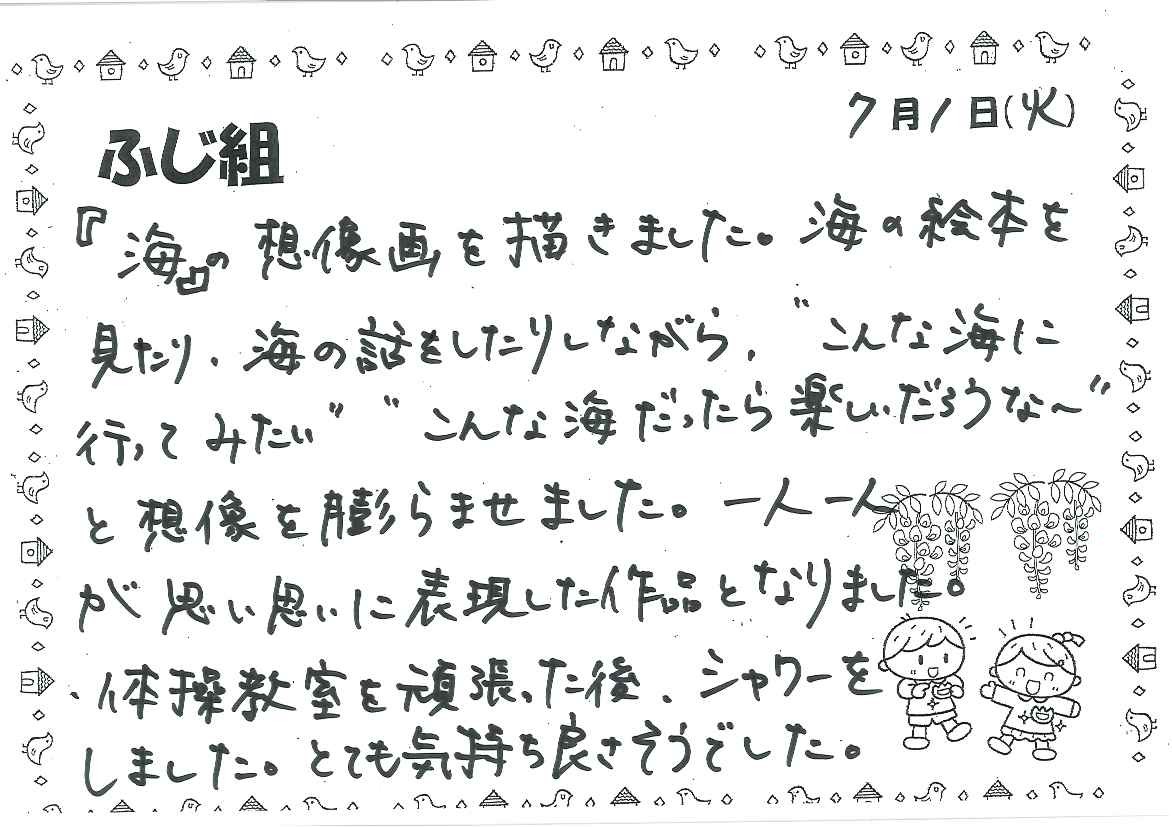 7月1日(火)
ふじ組
『海』の想像画を描きました。海の絵本を
見たり、海の話をしたりしながら、〝こんな海に
行ってみたい〟〝こんな海だったら楽しいだろうな～〟
と想像を膨らませました。一人一人
が思い思いに表現した作品となりました。
、体操教室を頑張った後、シャワーを
しました。とても気持ち良さそうでした。